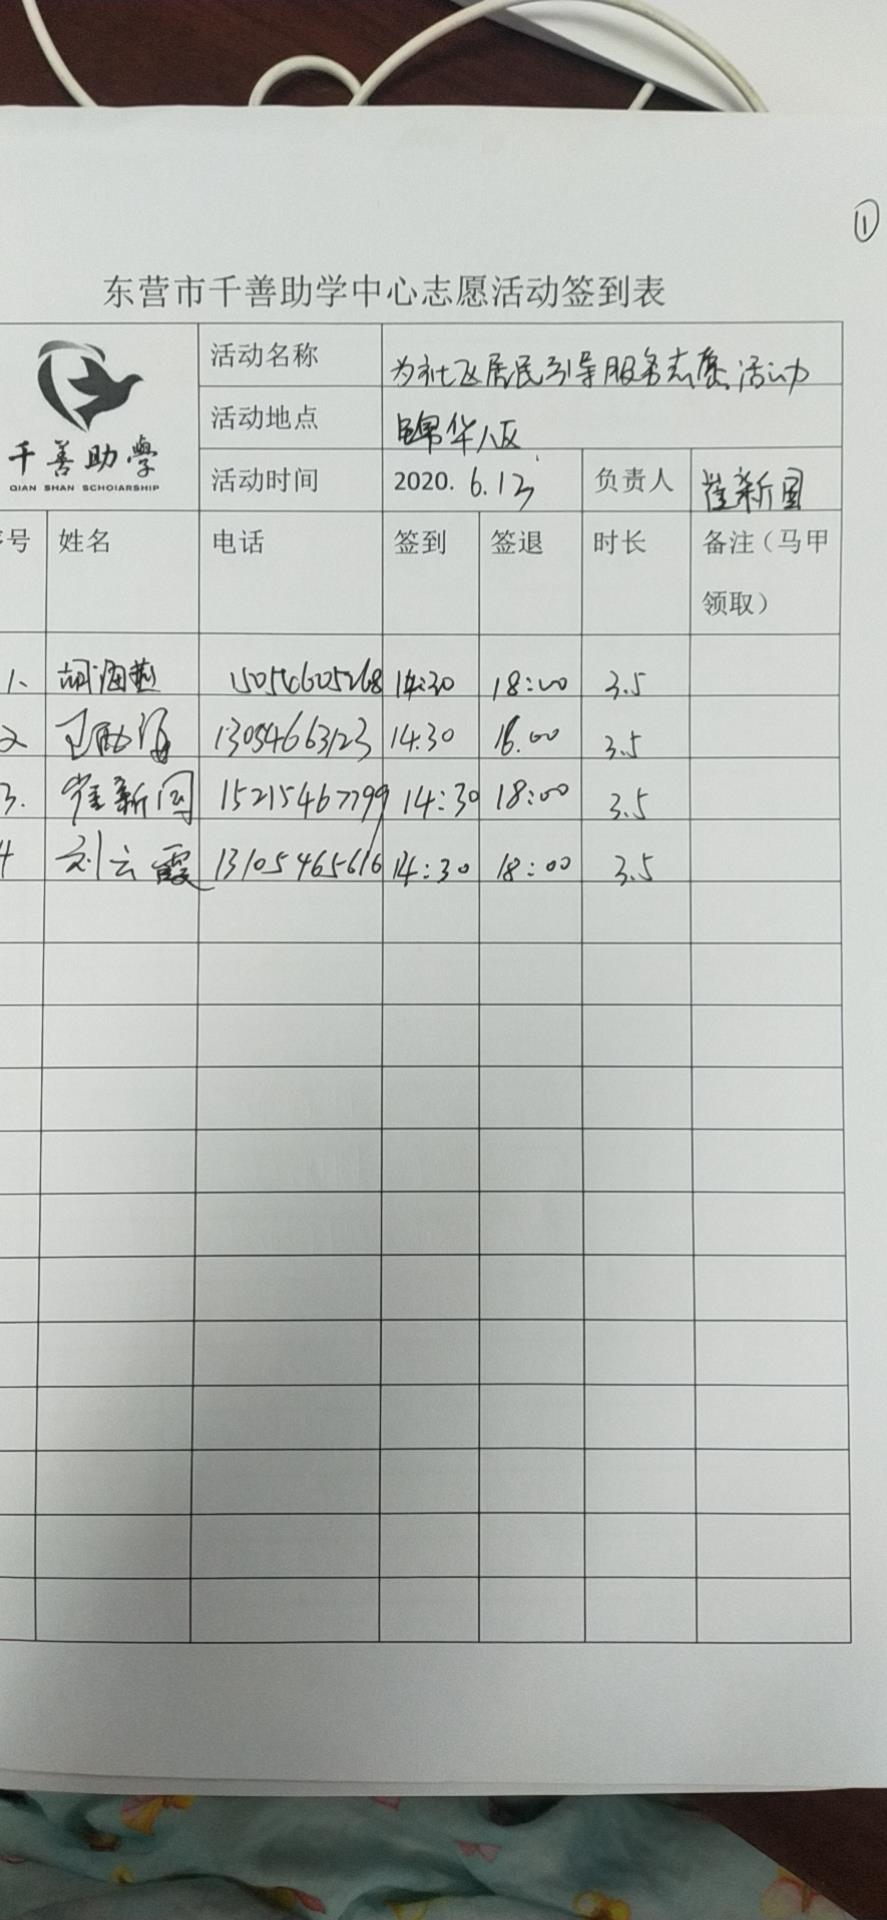 ①
东营市千善助学中心志愿活动签到表
千善助學
QIAN SHAN SCHOIARSHIP
活动名称 为社区居民引导服务志愿活动
活动地点 锦华八区
活动时间 2020. 6.13 负责人 崔新国
号 姓名 电话 签到 签退 时长 备注（马甲
领取）
1、 胡海燕 15054605268 14:30 18:00 3.5
2 13054663123 14:30 18.00 3.5
3. 崔新国 15215467799 14:30 18:00 3.5
4 刘云霞 13105465616 14:30 18:00 3.5